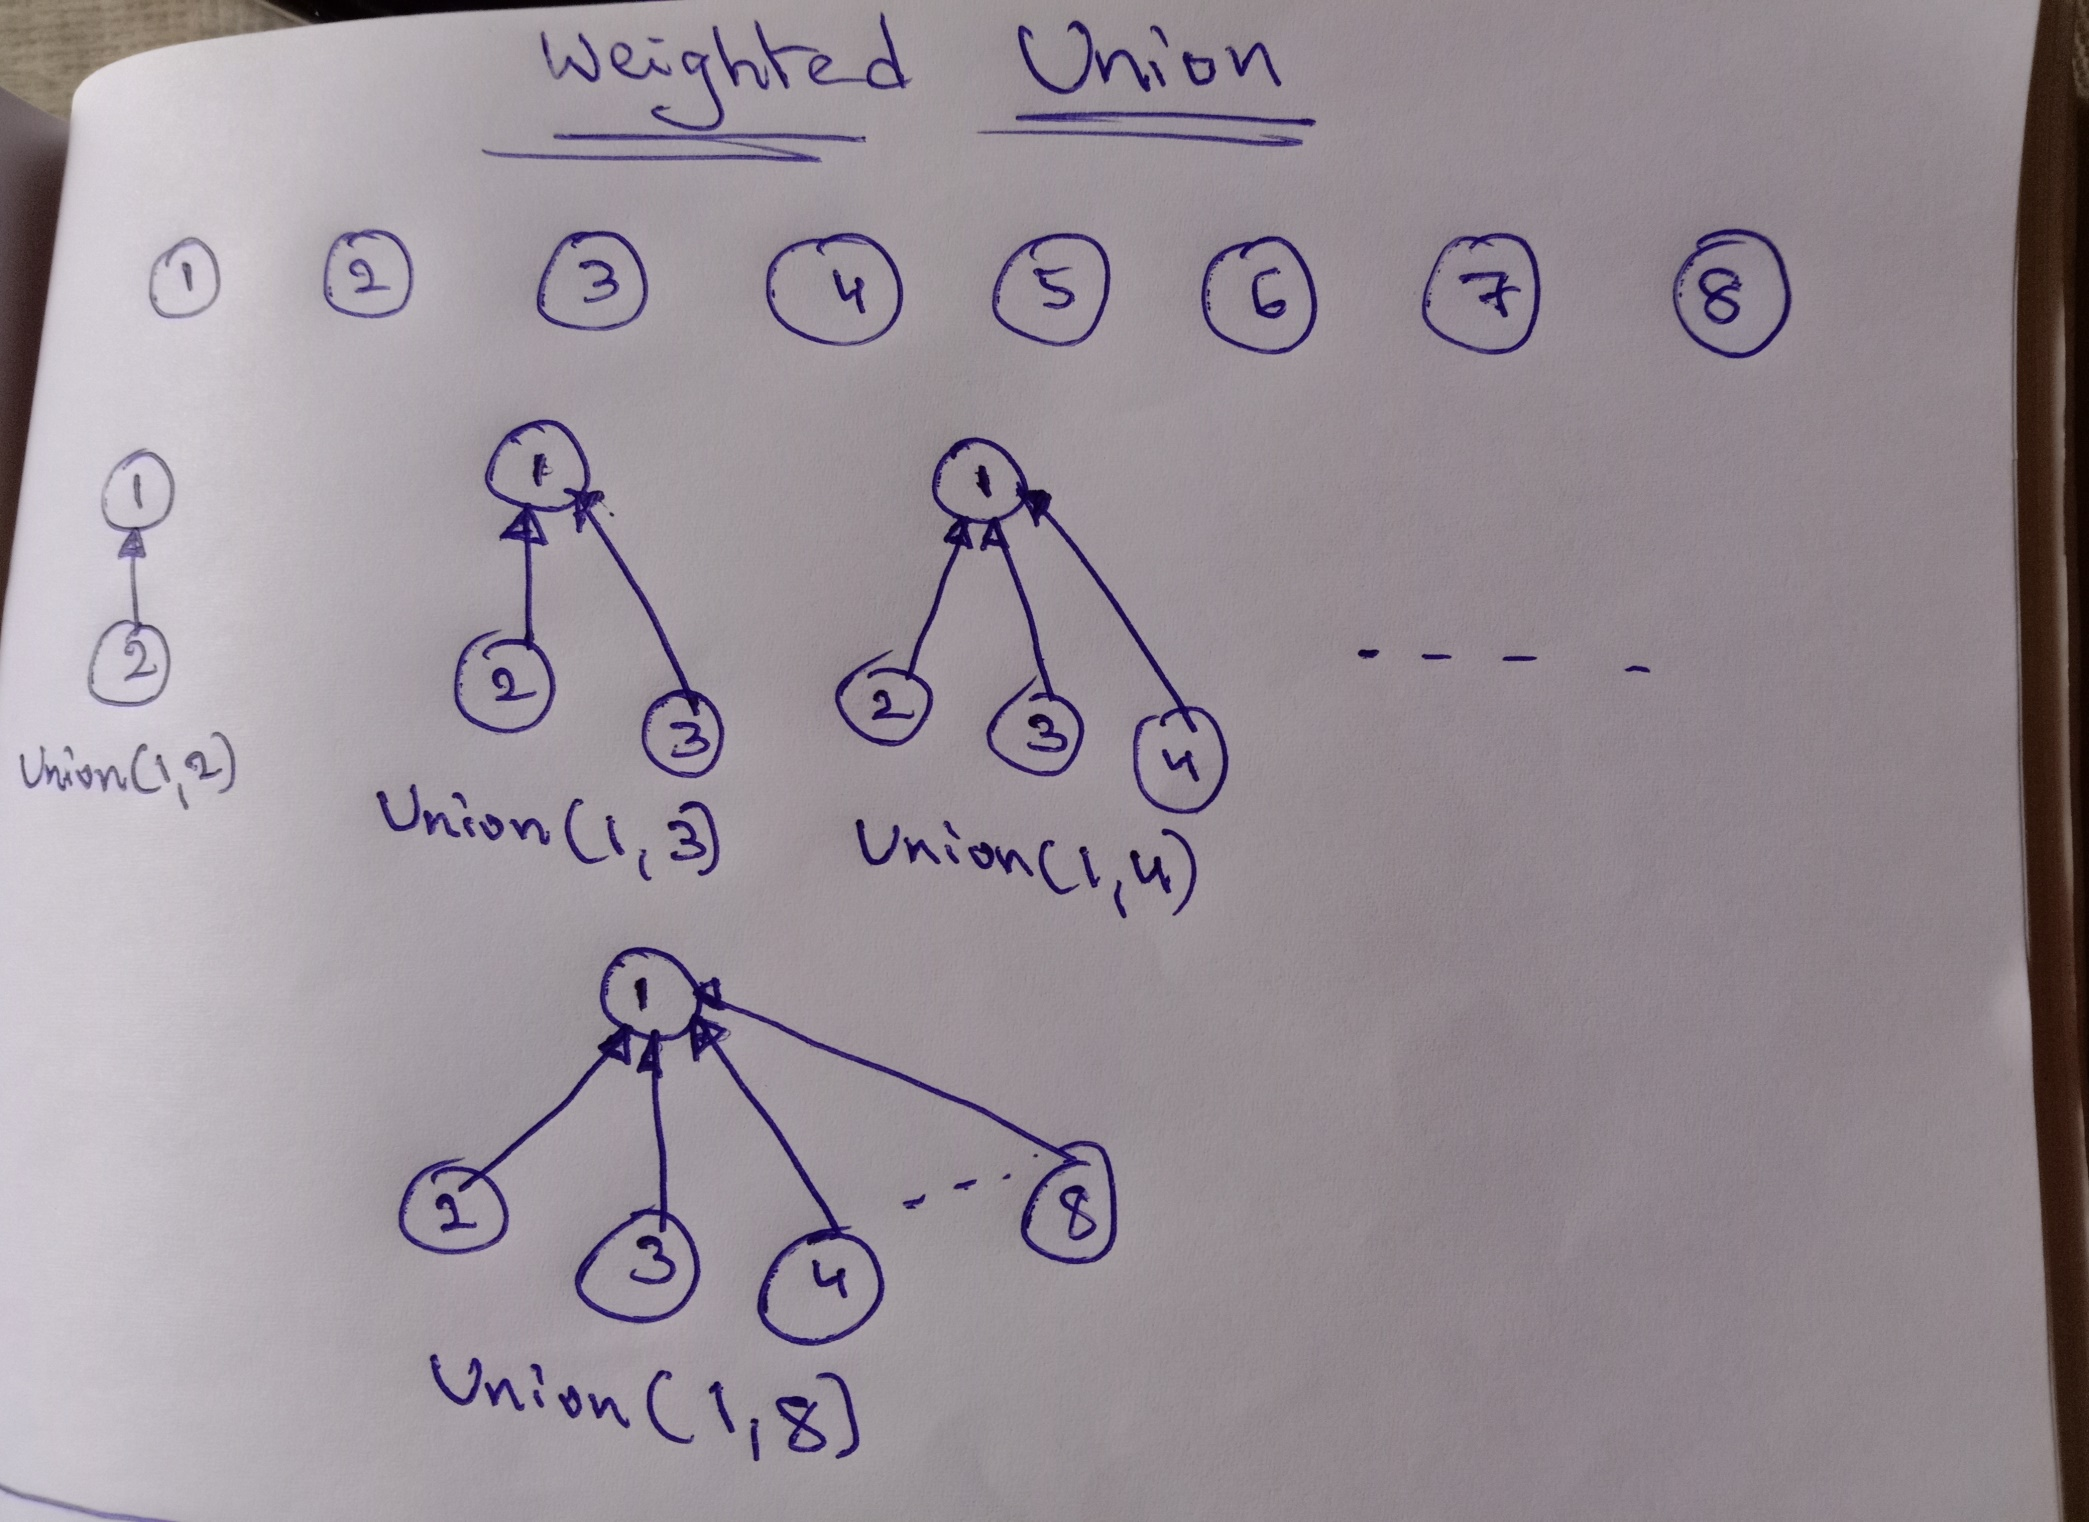 Weighted Union
1 2 3 4 5 6 7 8
1
2
Union(1,2)
1
2 3
Union(1,3)
1
2 3 4
Union(1,4)
- - - -
1
2 3 4 --- 8
Union(1,8)